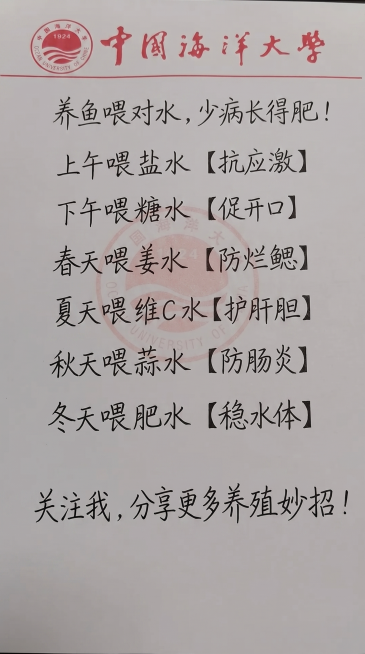 中国海洋大学
养鱼喂对水，少病长得肥！
上午喂盐水【抗应激】
下午喂糖水【促开口】
春天喂姜水【防烂鳃】
夏天喂维C水【护肝胆】
秋天喂蒜水【防肠炎】
冬天喂肥水【稳水体】
关注我，分享更多养殖妙招！